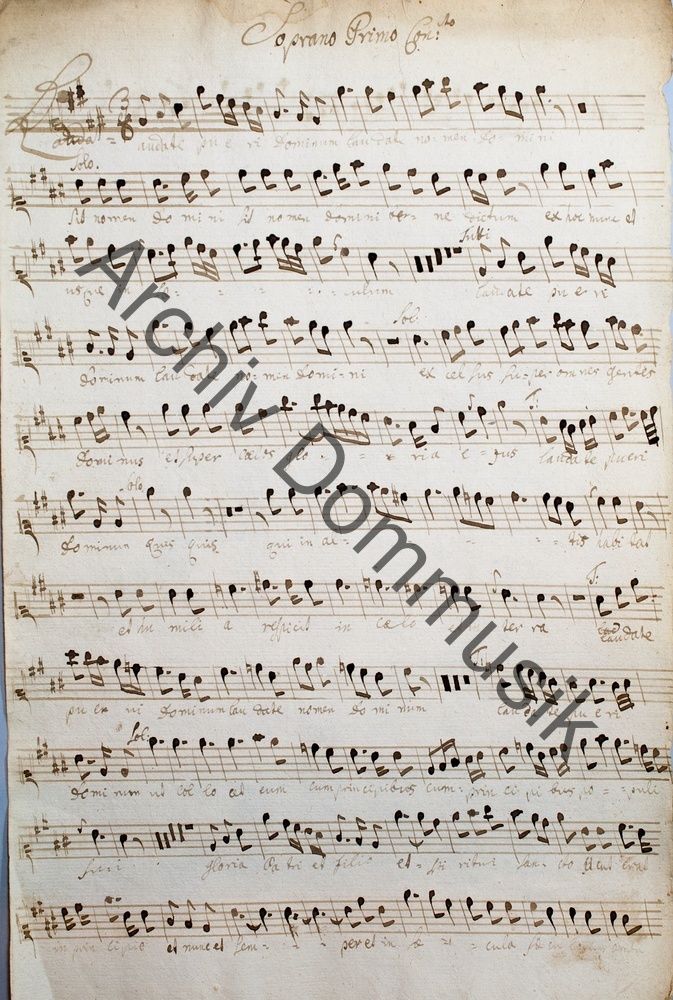 Soprano Primo Con:to
audate pu e ri Dominum laudate no men do mi ni
Solo.
Sit nomen do mi ni sit no men domini be- ne dictum ex hoc nunc et
Tutti
usque in culum laudate pu e ri
Sol:
dominum lau date no- men domi- ni ex cel sus su- per omnes gentes
T:
Dominus et super caelos glo - ria e - jus laudate pueri
Solo
dominum quis quis qui in al - tis habitat
T:
et hu mili a respicit in caelo et in ter ra laudate
pu er ri Dominum lau date nomen do mi num laudate pu e ri
Sol:
dominum ut col lo cet eum cum principibus cum prin ci pi bus po - puli
sui Gloria Pa tri et filio et Spi ritui San- cto sicut erat
in prin cipio et nunc et sem - per et in sae - cula
Archiv Dommusik